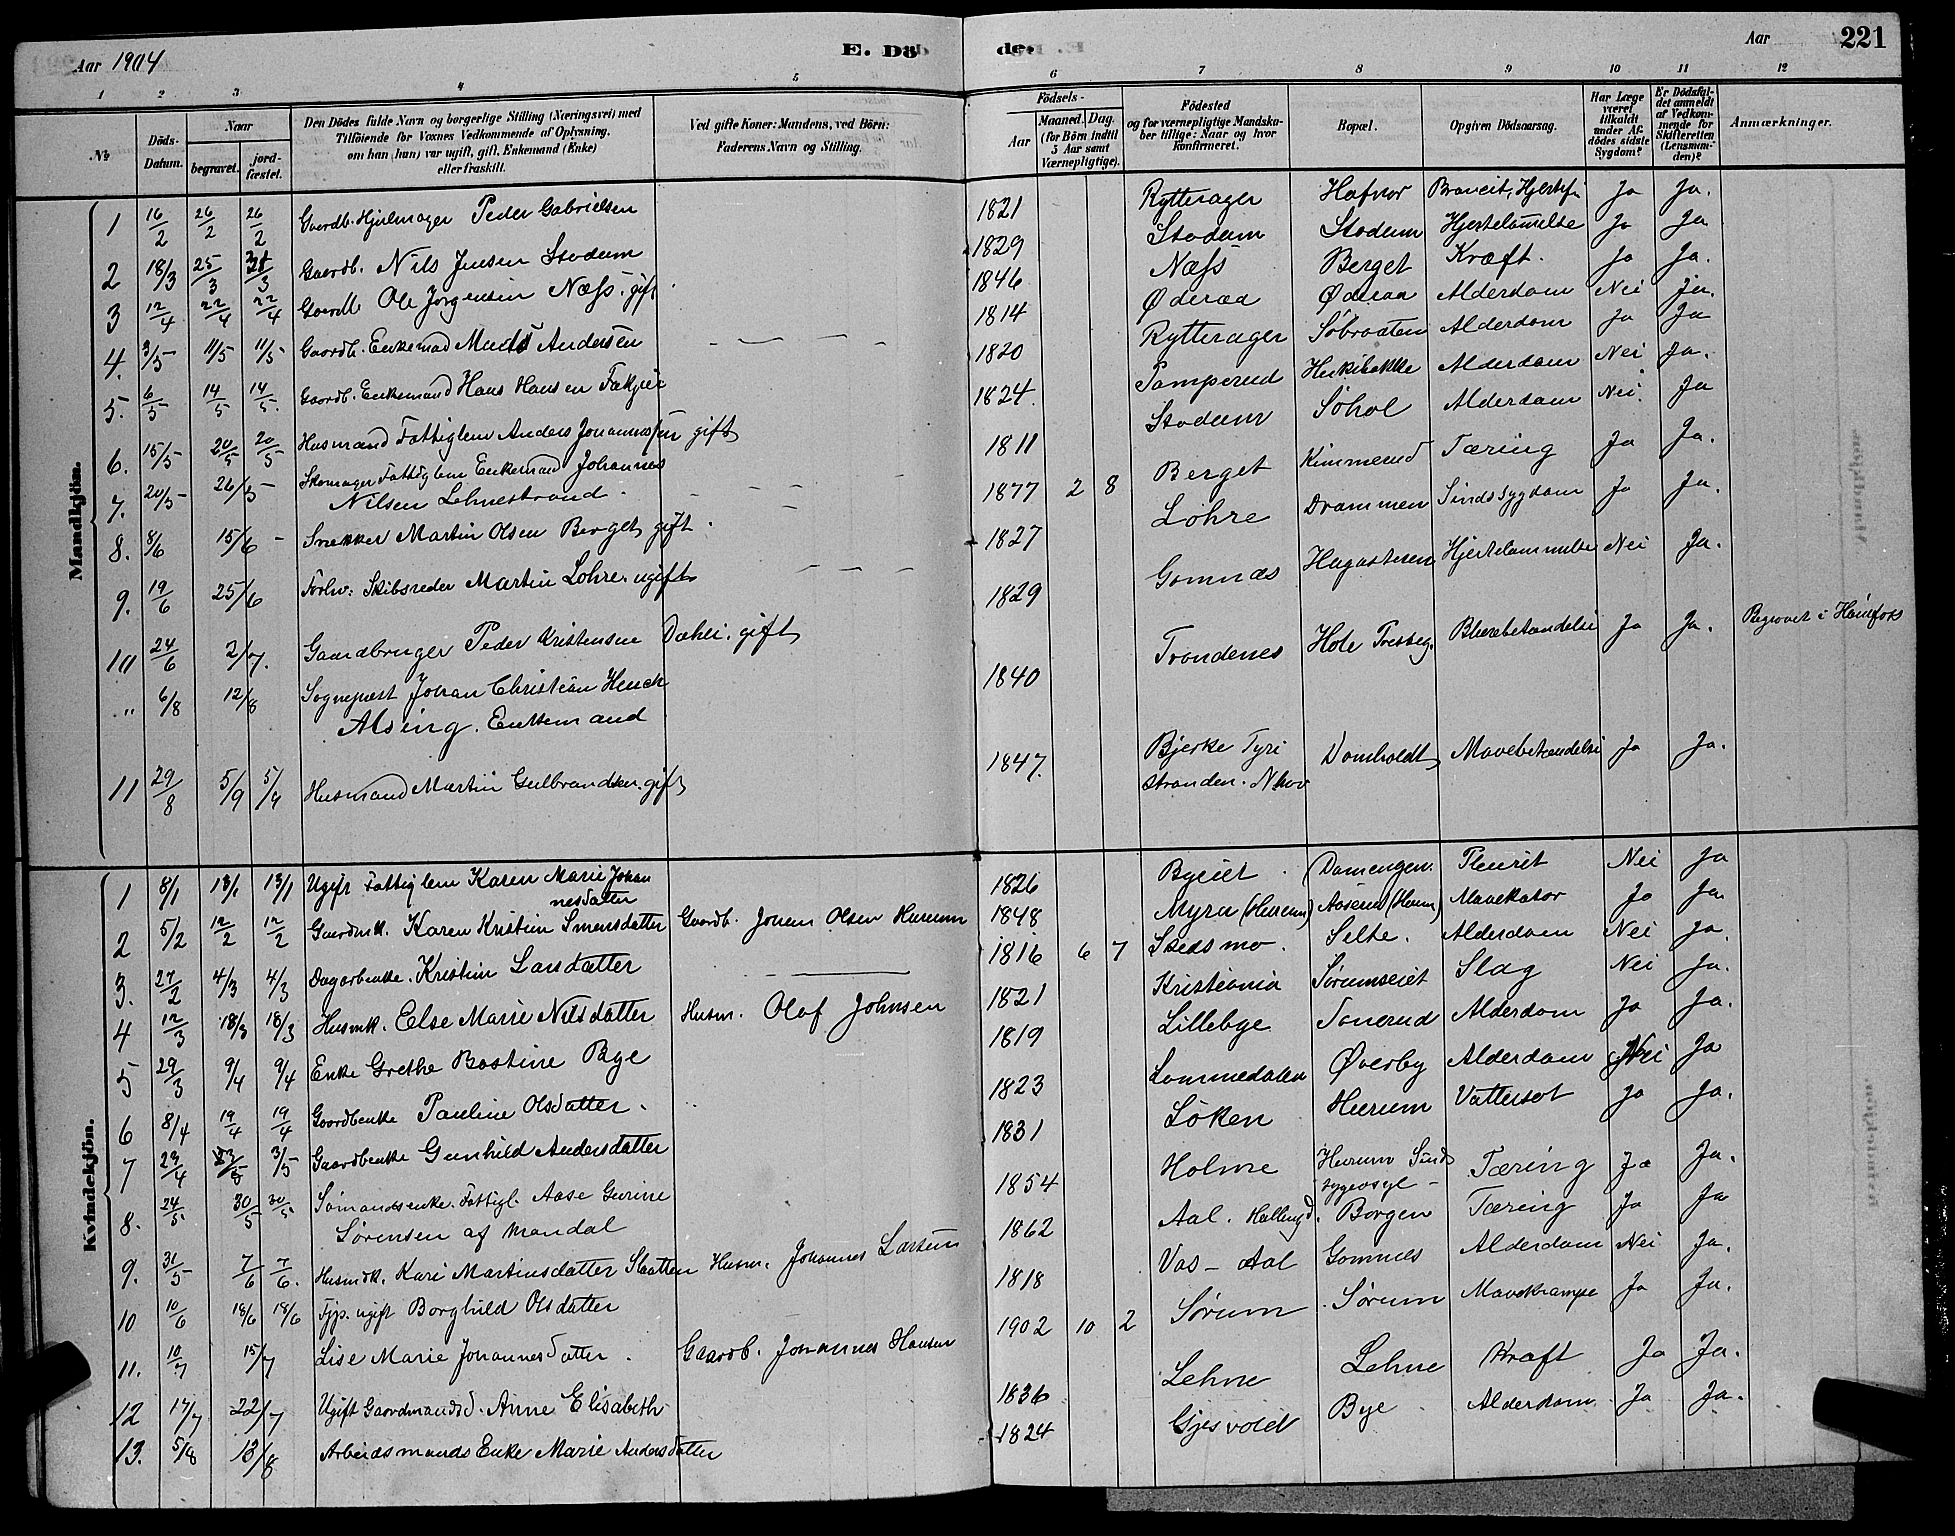 Aar 1904 E. Døde. Aar 221
1 2 3 4 5 6 7 8 9 10 11 12
No. Döds-Datum. Naar begravet. jordfæstet. Den Dödes fulde Navn og borgerlige Stilling (Næringsvei) med Tilföiende for Voxnes Vedkommende af Oplysning, om han (hun) var ugift, gift, Enkemand (Enke) eller fraskilt. Ved gifte Koner: Mandens, ved Börn: Faderens Navn og Stilling. Födsels- Aar Maaned. Dag. (for Börn indtil 5 Aar samt Værnepligtige). Födested og for værnepligtige Mandskaber tillige: Naar og hvor konfirmeret. Bopæl. Opgiven Dödsaarsag. Har Læge været tilkaldt under Afdödes sidste Sygdom? Er Dödsfaldet anmeldt af Vedkommende for Skifteretten (Lensmanden)? Anmærkninger.
Mandkjön.
1 16/2 26/2 26/2 Gaardb. Hjulmager Peder Gabrielsen 1821 Rytterager Hafnor Ja Ja.
2 18/3 25/3 Gaardb. Nils Jensen Stodum 1829 Stodum Stodum Hjertelammelse Ja Ja
3 12/4 22/4 22/4 Gaardb. Ole Jørgensen Næss. gift 1846 Næss Berget Kræft. Ja Ja.
4. 3/5 11/5 11/5 Gaardb. Enkemand Mads Andersen 1814 Øderaa Øderaa Alderdom Nei Ja.
5. 6/5 14/5 14/5. Gaardb. Enkemand Hans Hansen 1820 Rytterager Søbraaten Alderdom Ja Ja
6. 15/5 20/5 20/5 Husmand Fattiglem Anders Johannessen gift 1824. Pamperud Alderdom Nei Ja.
7. 20/5 26/5 Skomager Fattiglem Enkemand Johannes
Nilsen Lehnestrand. 1811 Stodum Søhol Alderdom Nei. Ja
8. 8/6 15/6 Snekker Martin Olsen Berget, gift. 1877 2 8 Berget Kimmerud Tæring Ja Ja.
9. 19/6 25/6 Forhv: Skibsreder Martin Lohre. ugift 1827 Løhre Drammen Sindssygdom Ja Ja.
10 24/6 2/7. Gaardbruger Peder Kristensen Dæhli. gift 1829 Gomnæs Hagasteren Hjertelammelse Nei Ja.
" 6/8 12/8 Sogneprest Johan Christian Heuch
Alsing. Enkemand 1840 Trondenes Hole Presteg. Blærebetændelse Ja Ja. Begravet i Hønefoss
11 29/8 5/9 5/9 Husmand Martin Gulbrandsen. gift 1847. Bjerke Tyri
stranden. N hov Domholdt Mavebetændelse Ja Ja.
Kvindekjön.
1 8/1 13/1 13/1 Ugift Fattiglem Karen Marie Johan
nesdatter 1826 Byeiet Damengen. Pleurit Nei Ja
2 5/2 12/2 12/2 Gaardmk. Karen Kristine Simensdatter Gaardb. Johan Olsen Hurum 1848 Myra (Hurum) Aaserud (Hurum) Mavekatar Ja Ja.
3. 27/2 4/3 4/3 Kristine Larsdatter 1816 6 7 Skedsmo. Selte. Alderdom Nei Ja.
4 12/3 18/3 18/3 Husmk. Else Marie Nilsdatter Husm. Olaf Johnsen 1821 Kristiania Sørumseiet Slag Nei Ja.
5 29/3 9/4 9/4 Enke Grethe Bastine Bye 1819 Lillebye Tanerud Alderdom Ja Ja.
6 8/4 19/4 19/4 Gaardbenke Pauline Olsdatter. 1823 Lommedalen Øverby Alderdom Nei Ja
7 29/4 3/5 Gaardbenke Gunhild Andersdatter 1831 Løken Hurum Vattersot Ja Ja.
8. 24/5 30/5 30/5 Sømandsenke. Fattigl. Aase Gurine
Sørensen af Mandal 1854 Holme Hurum Sinds
sygeasyl Tæring Ja Ja.
9. 31/5 7/6 7/6. Husmdk. Kari Martinsdatter Slaatten Husm. Johannes Larsen 1862 Aal. Hallingd. Borgen Tæring Ja Ja
10 10/6 18/6 18/6 Tjp. ugift Borghild Olsdatter 1818 Vas - Aal Gomnæs Alderdom Nei Ja.
11. 10/7 15/7 Lise Marie Johannesdatter. Gaardb. Johannes Hansen 1902 10 2 Sørum Sørum Mavekrampe Ja Ja.
12 17/7 22/7 Ugift Gaardmandsd. Anne Elisabeth 1836 Lehne Lehne Kræft Ja Ja.
13. 5/8 13/8 Arbeidsmands Enke Marie Andersdatter 1824 Gjesvold Bye Alderdom Ja Ja.